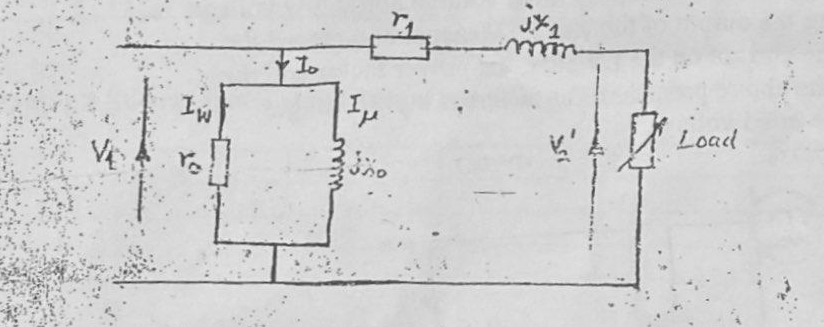 r₁
jx₁
I₀
I_W
I_μ
V₁
r₀
jx₀
V₂'
Load